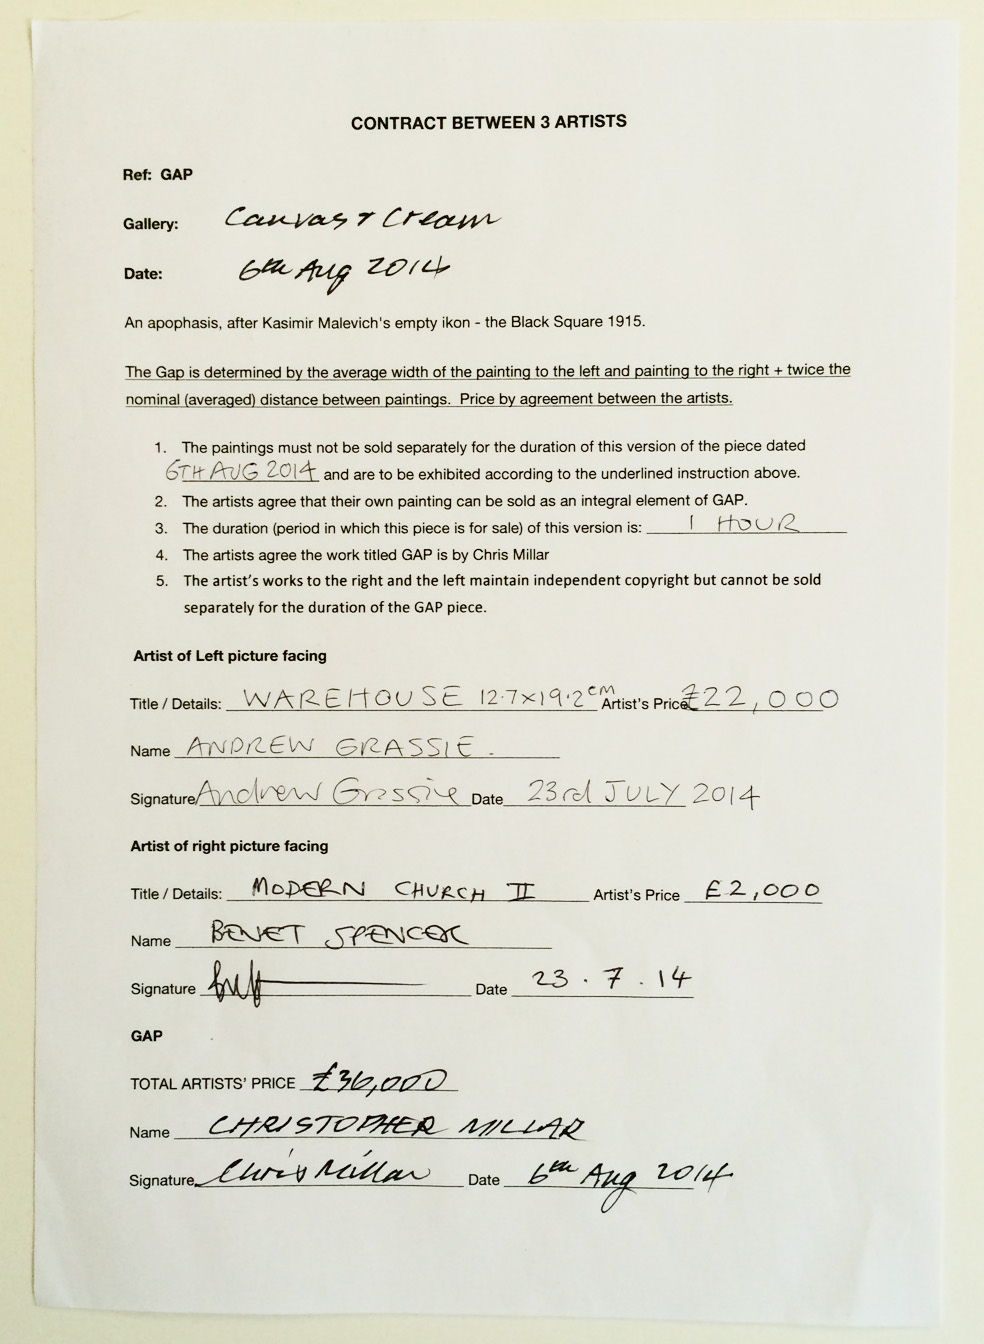 CONTRACT BETWEEN 3 ARTISTS
Ref: GAP
Gallery: Canvas & Cream
Date: 6th Aug 2014
An apophasis, after Kasimir Malevich's empty ikon - the Black Square 1915.
The Gap is determined by the average width of the painting to the left and painting to the right + twice the
nominal (averaged) distance between paintings. Price by agreement between the artists.
1. The paintings must not be sold separately for the duration of this version of the piece dated
6TH AUG 2014 and are to be exhibited according to the underlined instruction above.
2. The artists agree that their own painting can be sold as an integral element of GAP.
3. The duration (period in which this piece is for sale) of this version is: 1 HOUR
4. The artists agree the work titled GAP is by Chris Millar
5. The artist's works to the right and the left maintain independent copyright but cannot be sold
separately for the duration of the GAP piece.
Artist of Left picture facing
Title / Details: WAREHOUSE 12.7x19.2cm Artist's Price £22,000
Name ANDREW GRASSIE.
Signature Andrew Grassie Date 23rd JULY 2014
Artist of right picture facing
Title / Details: MODERN CHURCH II Artist's Price £2,000
Name BENET SPENCER
Signature Date 23.7.14
GAP
TOTAL ARTISTS' PRICE £36,000
Name CHRISTOPHER MILLAR
Signature Chris Millar Date 6th Aug 2014